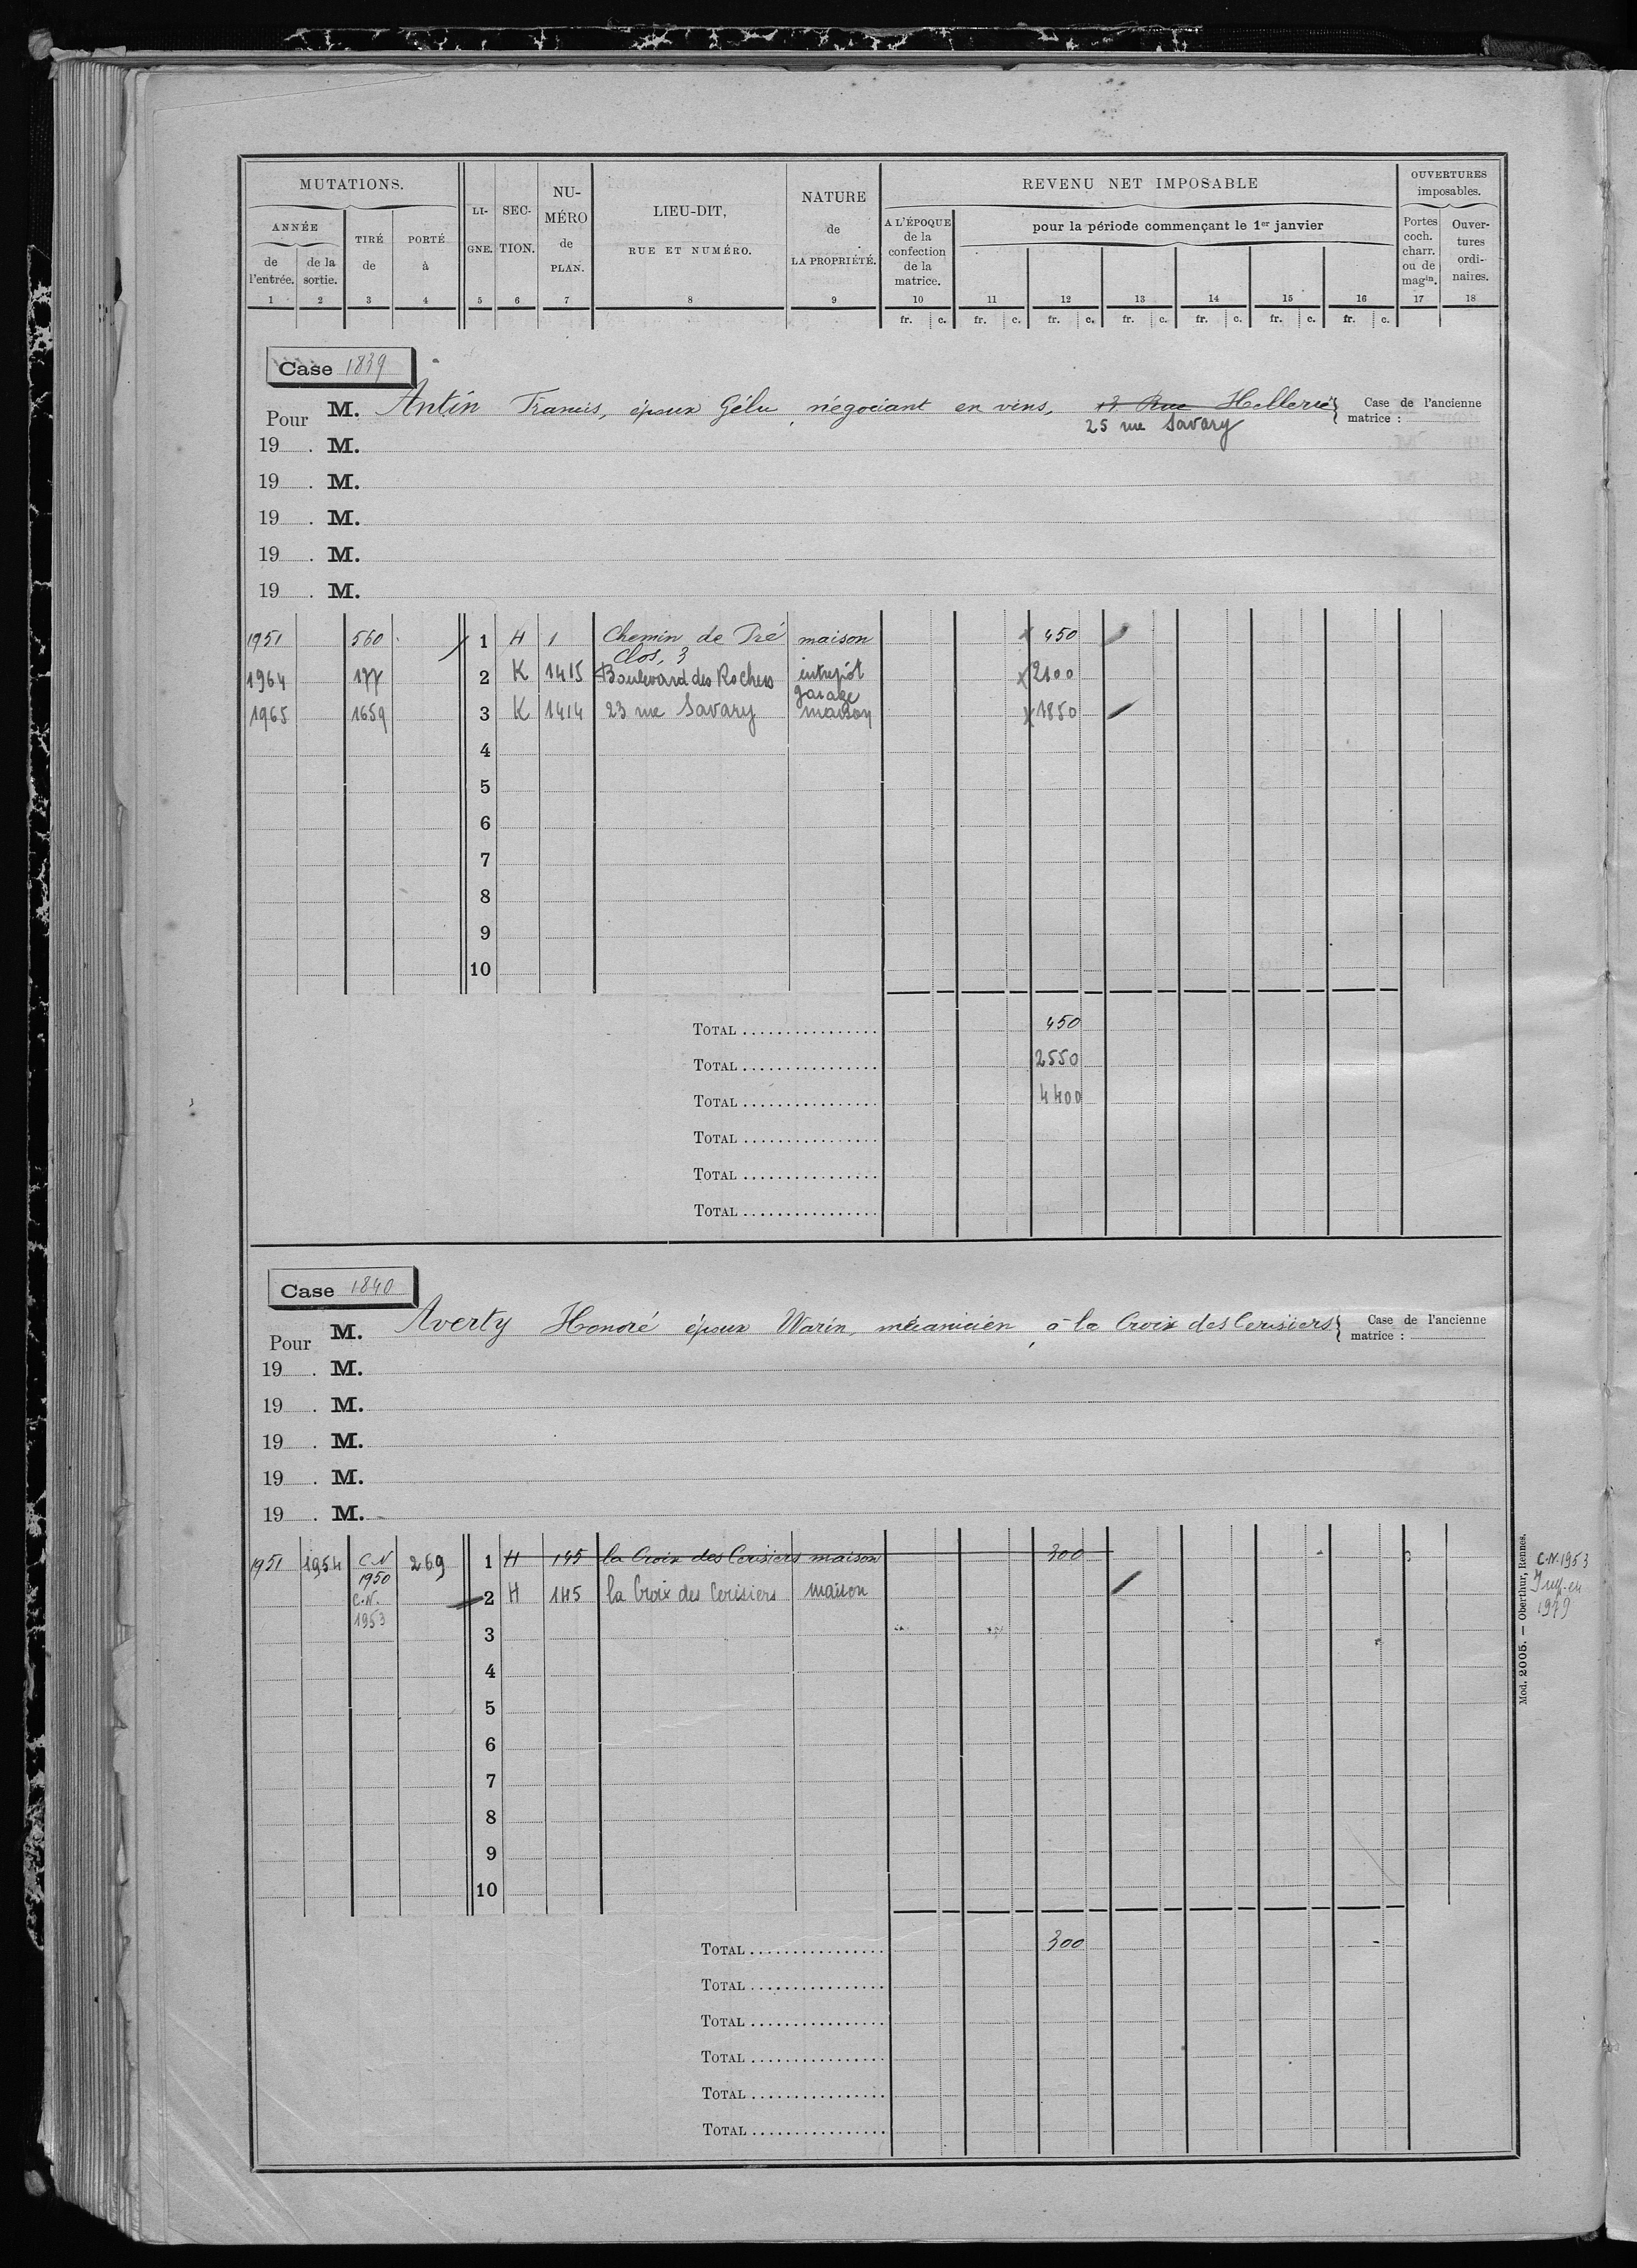 MUTATIONS.
ANNÉE
de l'entrée.
de la sortie.
TIRÉ de
PORTÉ à
LI-GNE.
SEC-TION.
NU-MÉRO de PLAN.
LIEU-DIT,
RUE ET NUMÉRO.
NATURE de LA PROPRIÉTÉ.
REVENU NET IMPOSABLE
A L'ÉPOQUE de la confection de la matrice.
pour la période commençant le 1er janvier
OUVERTURES imposables.
Portes coch. charr. ou de magin.
Ouver-tures ordi-naires.
1 2 3 4 5 6 7 8 9 10 11 12 13 14 15 16 17 18
fr. c. fr. c. fr. c. fr. c. fr. c. fr. c. fr. c.
Case 1839
Pour M. Antin Francis, époux Gélu, négociant en vins, Rue Hellerie
25 rue Savary
Case de l'ancienne matrice :
19 . M.
19 . M.
19 . M.
19 . M.
19 . M.
1951 560 1 H 1 Chemin de Pré Clos, 3 maison 450
1964 177 2 K 1415 Boulevard des Rochers entrepôt 2100
1965 1659 3 K 1414 23 rue Savary garage maison 1850
4
5
6
7
8
9
10
TOTAL 450
TOTAL 2550
TOTAL 4400
TOTAL
TOTAL
TOTAL
Case 1840
Pour M. Averty Honoré époux Warin, mécanicien, à la Croix des Cerisiers
Case de l'ancienne matrice :
19 . M.
19 . M.
19 . M.
19 . M.
19 . M.
1951 1954 C.N 1950 269 1 H 145 la Croix des Cerisiers maison 300
C.N. 1953 2 H 145 la Croix des Cerisiers maison
3
4
5
6
7
8
9
10
TOTAL 300
TOTAL
TOTAL
TOTAL
TOTAL
TOTAL
Mod. 2005. — Oberthur, Rennes.
C.N. 1953